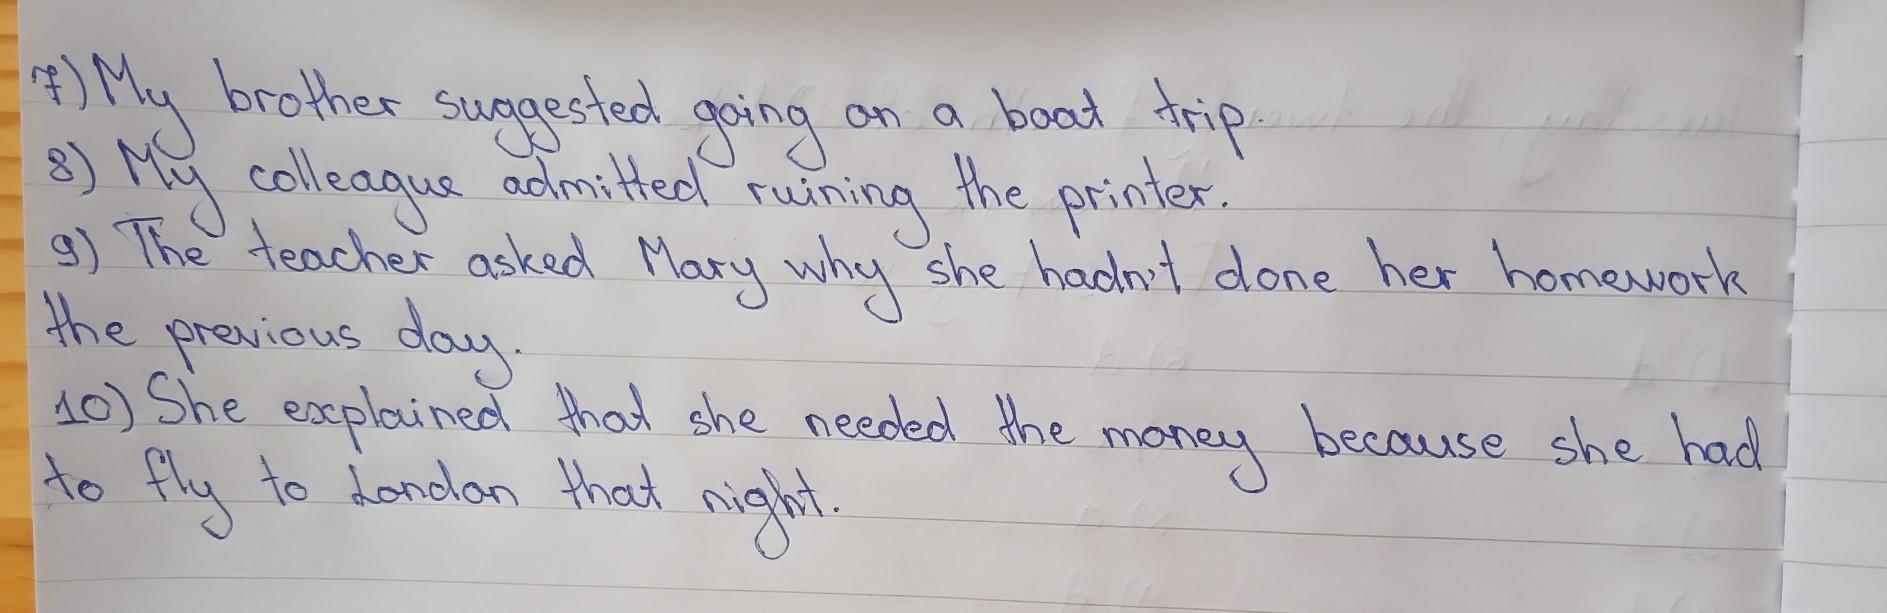 7) My brother suggested going on a boat trip.
8) My colleague admitted ruining the printer.
9) The teacher asked Mary why she hadn't done her homework
the previous day.
10) She explained that she needed the money because she had
to fly to London that night.